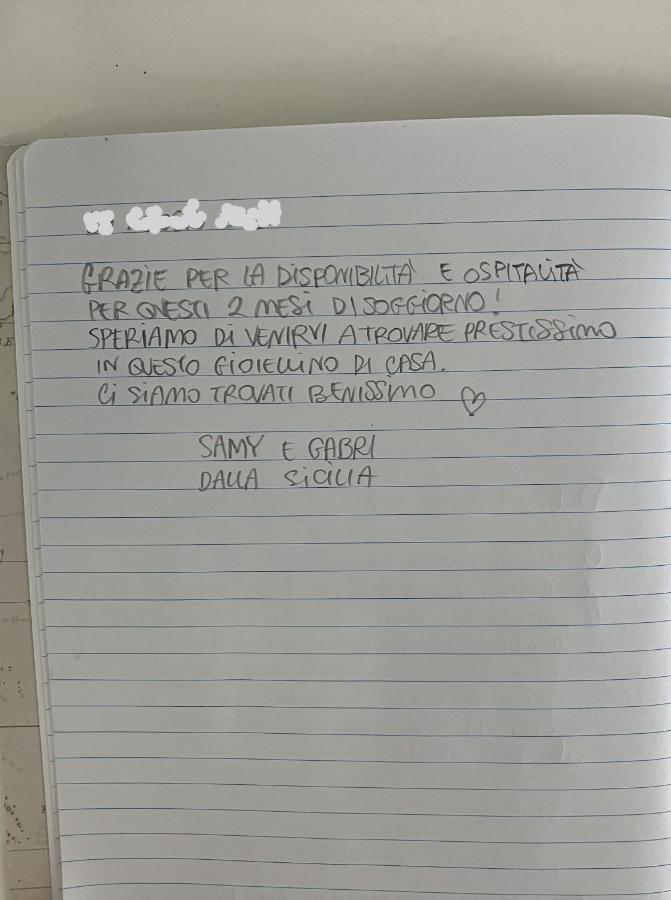 GRAZIE PER LA DISPONIBILITÀ E OSPITALITÀ
PER QUESTI 2 MESI DI SOGGIORNO!
SPERIAMO DI VENIRVI A TROVARE PRESTISSIMO
IN QUESTO GIOIELLINO DI CASA.
CI SIAMO TROVATI BENISSIMO ♡
SAMY E GABRI
DALLA SICILIA